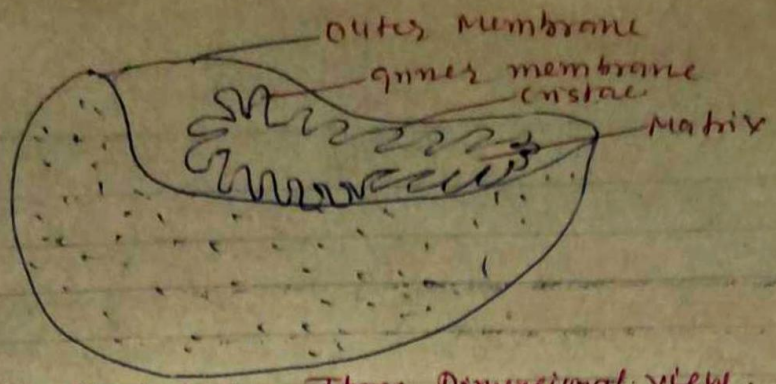 Outer Membrane
inner membrane
cristae
Matrix
Three Dimensional view.